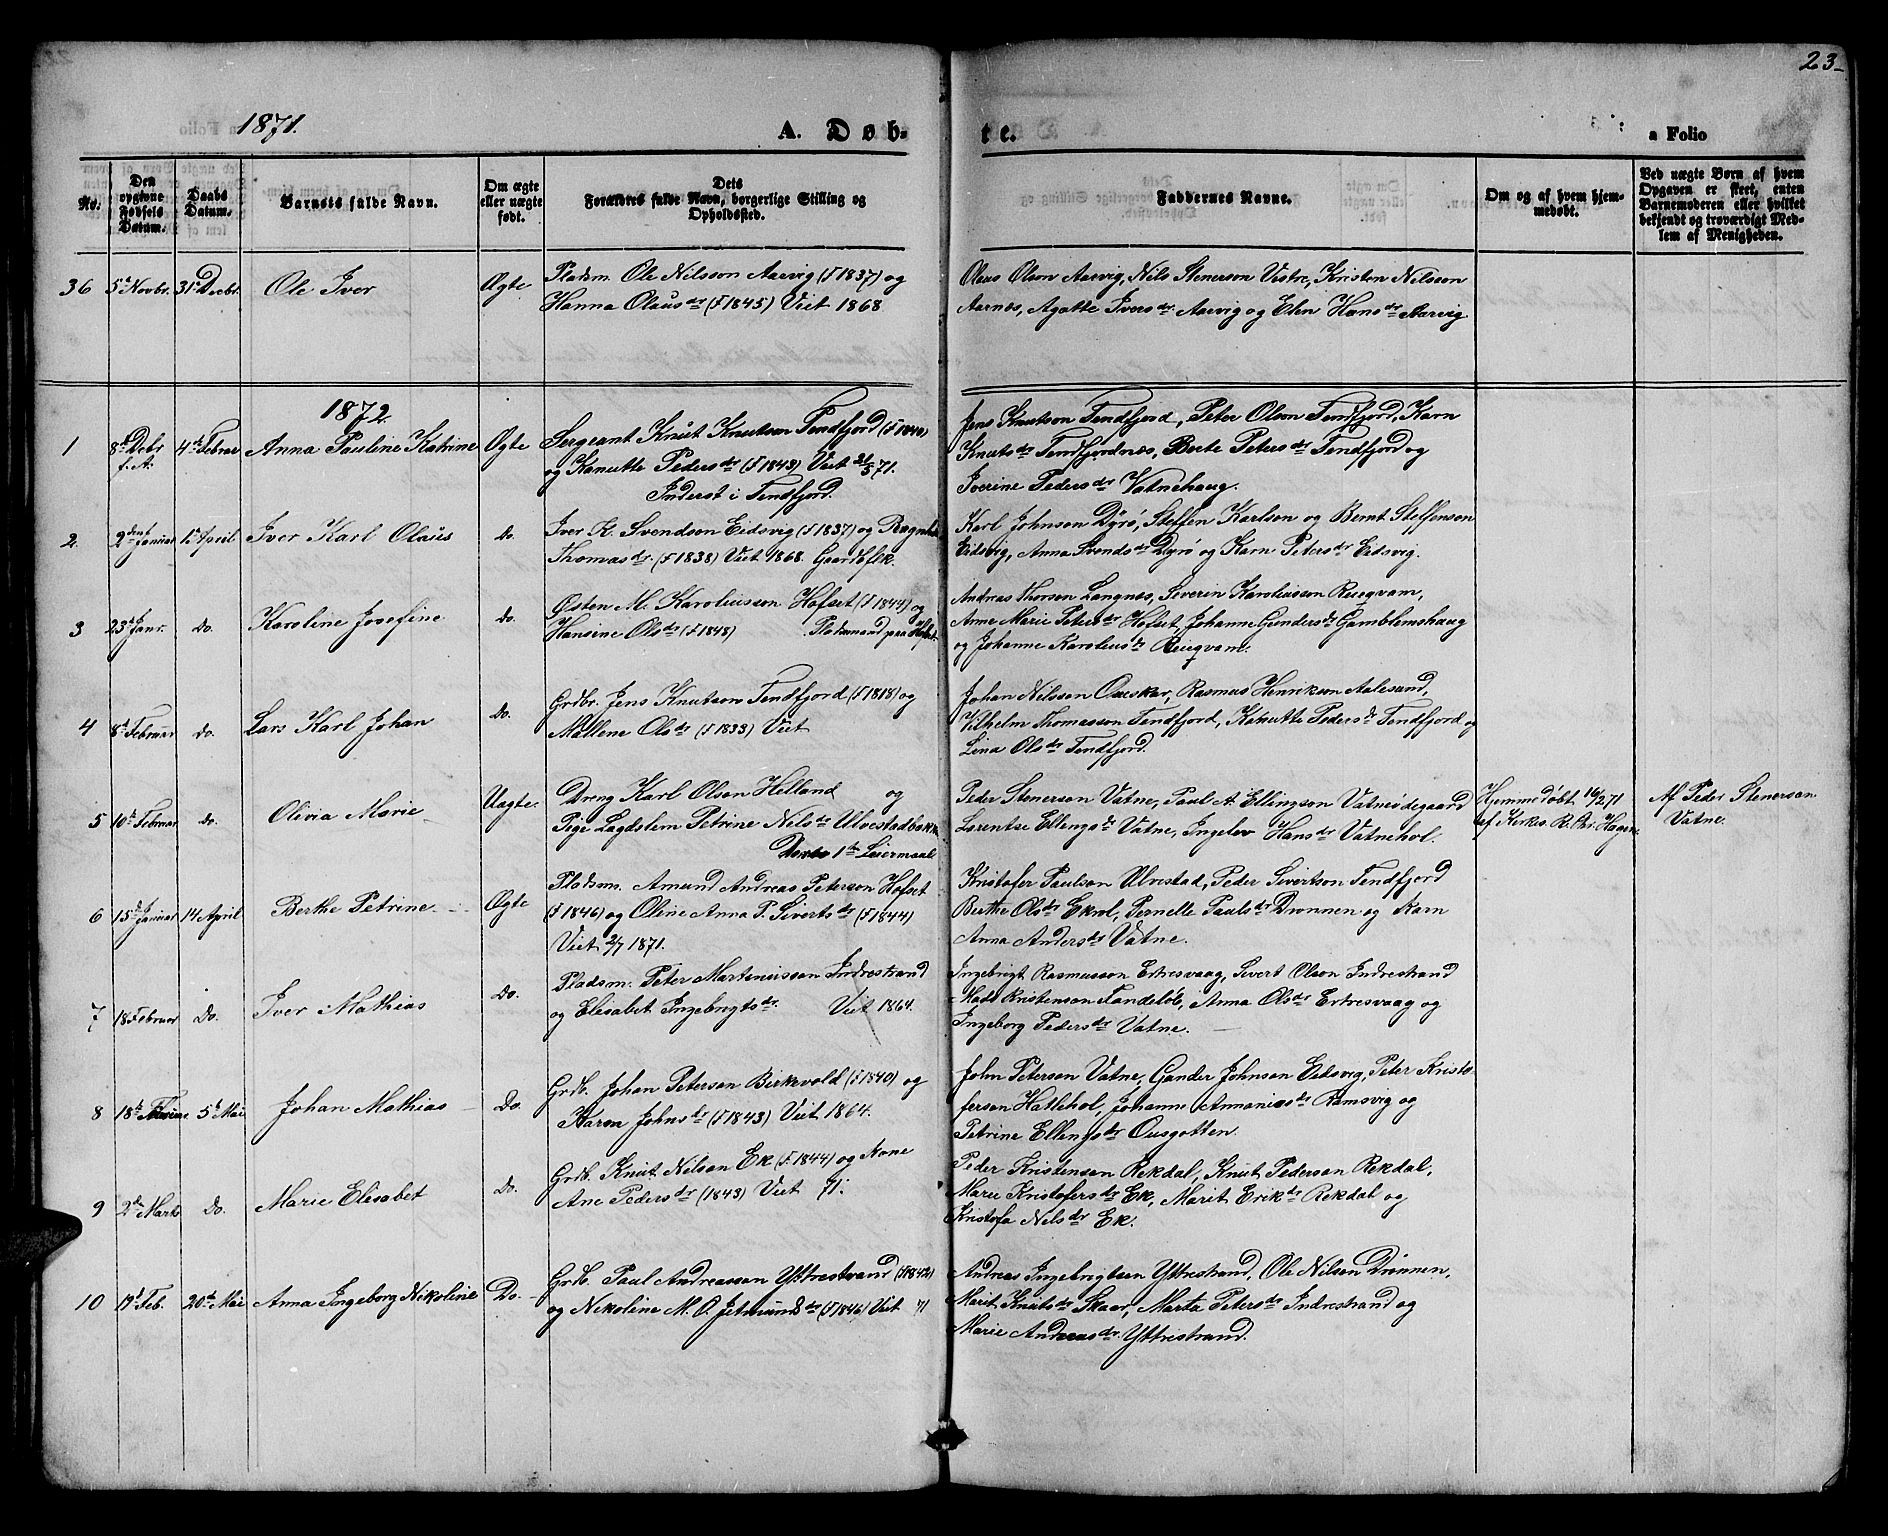 23
1871. A. Døb- te. a Folio
No. | Den opgivne Fødsels Datum. | Daabs Datum. | Barnets fulde Navn. | Om ægte eller uægte født. | Dets Forældres fulde Navn, borgerlige Stilling og Opholdssted. | Faddernes Navne. | Om og af hvem hjemmedøbt. | Ved uægte Børn af hvem Opgaven er skeet, enten Barnemoderen eller hvilket bekjendt og troværdigt Medlem af Menigheden.
36 5te Novbr. 31te Decbr. Ole Iver Ægte Pladsm. Ole Nilsson Aarvig (f 1837) og
Hanna Olausdr (f 1845) Viet 1868
Olaus Olson Aarvig, Nils Stenerson Vistre, Kristen Nilsson
Aarnes, Agatte Iversdr Aarvig og Elen Hansdr Aarvig
1872
1 8de Debr f. A. 4de Februar Anna Pauline Katrine Ægte Sergeant Knut Knutson Tendfjord (f 1840)
og Kanutte Pedersdr (f 1843) Viet 21/5 71.
Inderst i Tendfjord.
Jens Knutson Tendfjord, Peter Olson Tendfjord, Karn
Knutsdr Tendfjordnes, Berte Petersdr Tendfjord og
Iverine Pedersdr Vatnehaug.
2 2den Januar 1te April Iver Karl Olaus Do. Iver K. Svendson Eidsvig (f 1837) og
Thomasdr. (f 1838) Viet 1868. Gaardsflk.
Karl Johnson Dyrø, Steffen Karlson og Bernt Steffenson
Eidsvig, Anna Svendsdr Dyrø og Karn Petersdr Eidsvig.
3 23de Janr. Do. Karoline Josefine Do. Østen M. Karoliusson Hofset (f 1844) og
Hansine Olsdr (f 1848) Pladsmand paa Hofset
Andreas Thorson Langnes, Severin Karoliusson
Anne Marie Petersdr Hofset, Johanne Gundersdr Gamblemshaug
og Johanne Karoliusdr
4 8de Februar Do. Lars Karl Johan Do. Grdbr. Jens Knutson Tendfjord (f 1818) og
Mallene Olsdr (f 1833) Viet
Johan Nilsson Rasmus Henrikson Aalesund,
Vilhelm Thomasson Tendfjord, Kanutte Pedersdr Tendfjord og
Lina Olsdr Tendfjord.
5 10de Februar Do. Olivia Marie Uægte. Dreng Karl Olson Helland og
Pige Lagdslem Petrine Nilsdr Ulvestadbakk
1te Leiermaal
Peder Stenerson Vatne, Paul A. Ellingson Vatneødegaard
Lorentse Ellingsdr Vatne, Ingelev Hansdr Vatnehol.
Hjemmedøbt 16/2 71
af Kirkes. R. Chr. Hagene
Af Peder Stenerson
Vatne.
6 15de Januar 14 April Berthe Petrine Ægte Pladsm. Amund Andreas Peterson Hofset
(f 1846) og Oline Anna P. Sivertsdr (f 1844)
Viet 2/7 1871.
Kristofer Paulson Ulvestad, Peder Sivertson Tendfjord
Berthe Olsdr Ekrol, Pernelle Paulsdr Drønnen og Karn
Anna Andersdr Vatne.
7 18 Februar Do. Iver Mathias Do. Pladsm. Peter Martinusson Indrestrand
og Elisabet Ingebrigtsdr. Viet 1864.
Ingebrigt Rasmusson Ertresvaag, Sivert Olson Indrestrand
Mads Kristenson Tandeløb, Anna Olsdr Ertresvaag og
Ingeborg Pedersdr Vatne.
8 18de 5te Mai Johan Mathias Do. Grdb. Johan Peterson Birkevold (f 1840) og
Karen Johnsdr (f 1843) Viet 1864.
John Peterson Vatne, Gunder Johnson Eidsvig, Peter Kristo-
ferson Hatlehol, Johanne Annaniasdr Ramsvig og
Petrine Ellingsdr Ousgotten.
9 2de Marts Do. Marie Elisabet Do. Grdb. Knut Nilson Ek (f 1844) og Kone
Ane Pedersdr (1843) Viet 71.
Peder Kristenson Rekdal, Knut Pederson Rekdal,
Marie Kristofersdr Ek, Marit Eriksdr Rekdal og
Kristofa Nelsdr Ek.
10 19de Feb. 20de Mai Anna Ingeborg Nikoline Do Grdb. Paul Andreasson Yttrestrand (f 1842)
og Nikoline M. O. Jetmundsdr (f 1846) Viet 71
Andreas Ingebrigtsen Yttrestrand, Ole Nilson Drønnen,
Marit Knutsdr Skaar, Marta Petersdr Indrestrand og
Marie Andreasdr Yttrestrand.